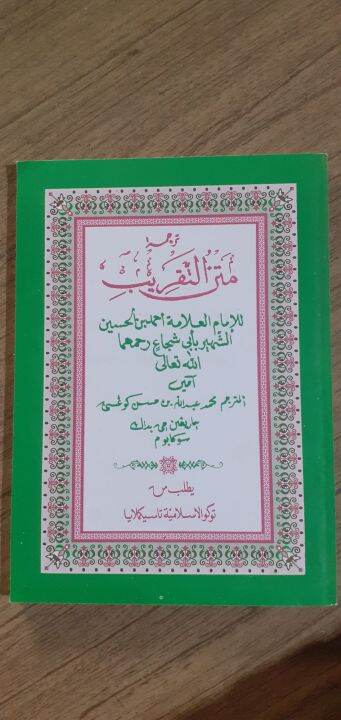 ترجمة
متن التقريب
للإمام العلامة احمد بن الحسين
الشهير بأبي شجاع رحمهما
الله تعالى
آمين
المترجم محمد عبدالله بن حسن
سوكابوم
يطلب من
توكو الاسلامية تاسيكملايا